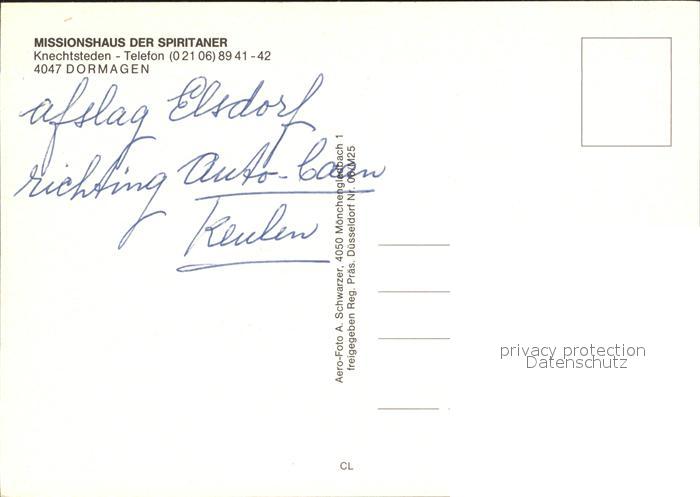 MISSIONSHAUS DER SPIRITANER
Knechtsteden - Telefon (0 21 06) 89 41 - 42
4047 DORMAGEN
afslag Elsdorf
richting Auto-baan
Keulen
Aero-Foto A. Schwarzer, 4050 Mönchengladbach 1
freigegeben Reg. Präs. Düsseldorf Nr.
privacy protection
Datenschutz
CL